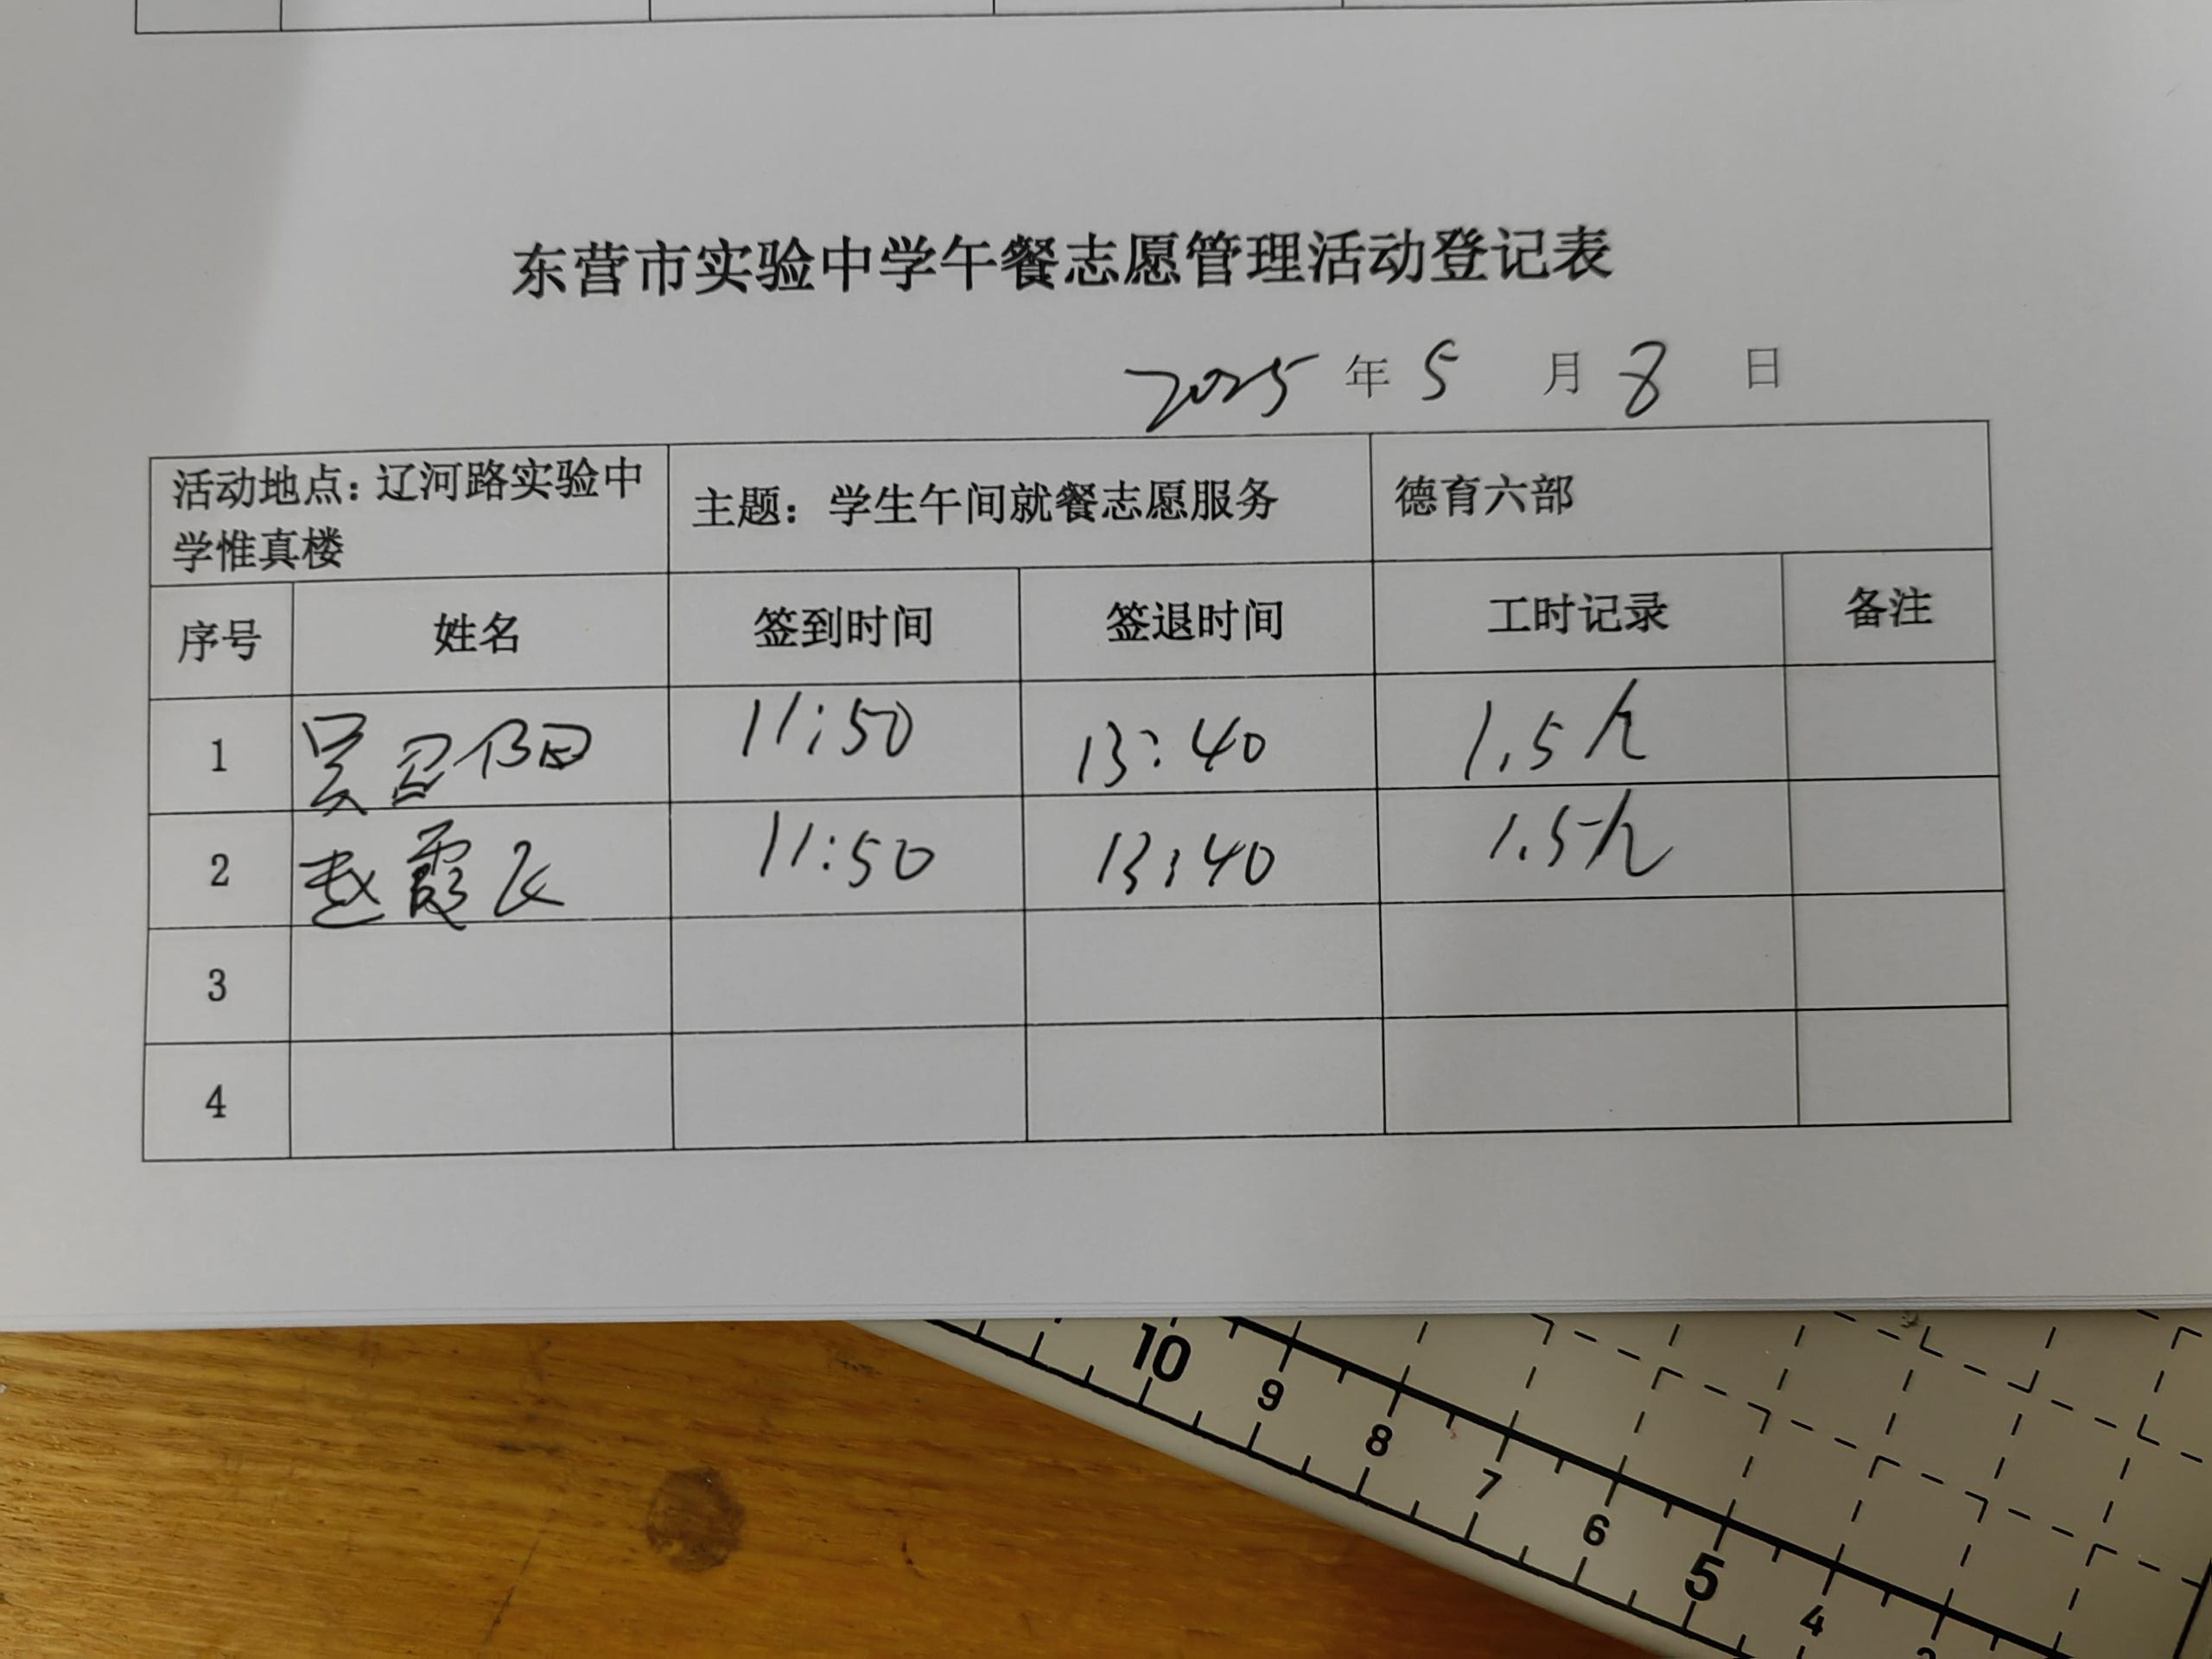 东营市实验中学午餐志愿管理活动登记表
2025 年 5 月 8 日
活动地点：辽河路实验中
学惟真楼
主题：学生午间就餐志愿服务
德育六部
序号 姓名 签到时间 签退时间 工时记录 备注
1 吴 阳 11:50 13:40 1.5h
2 赵霞 11:50 13:40 1.5h
3
4
10 9 8 7 6 5 4